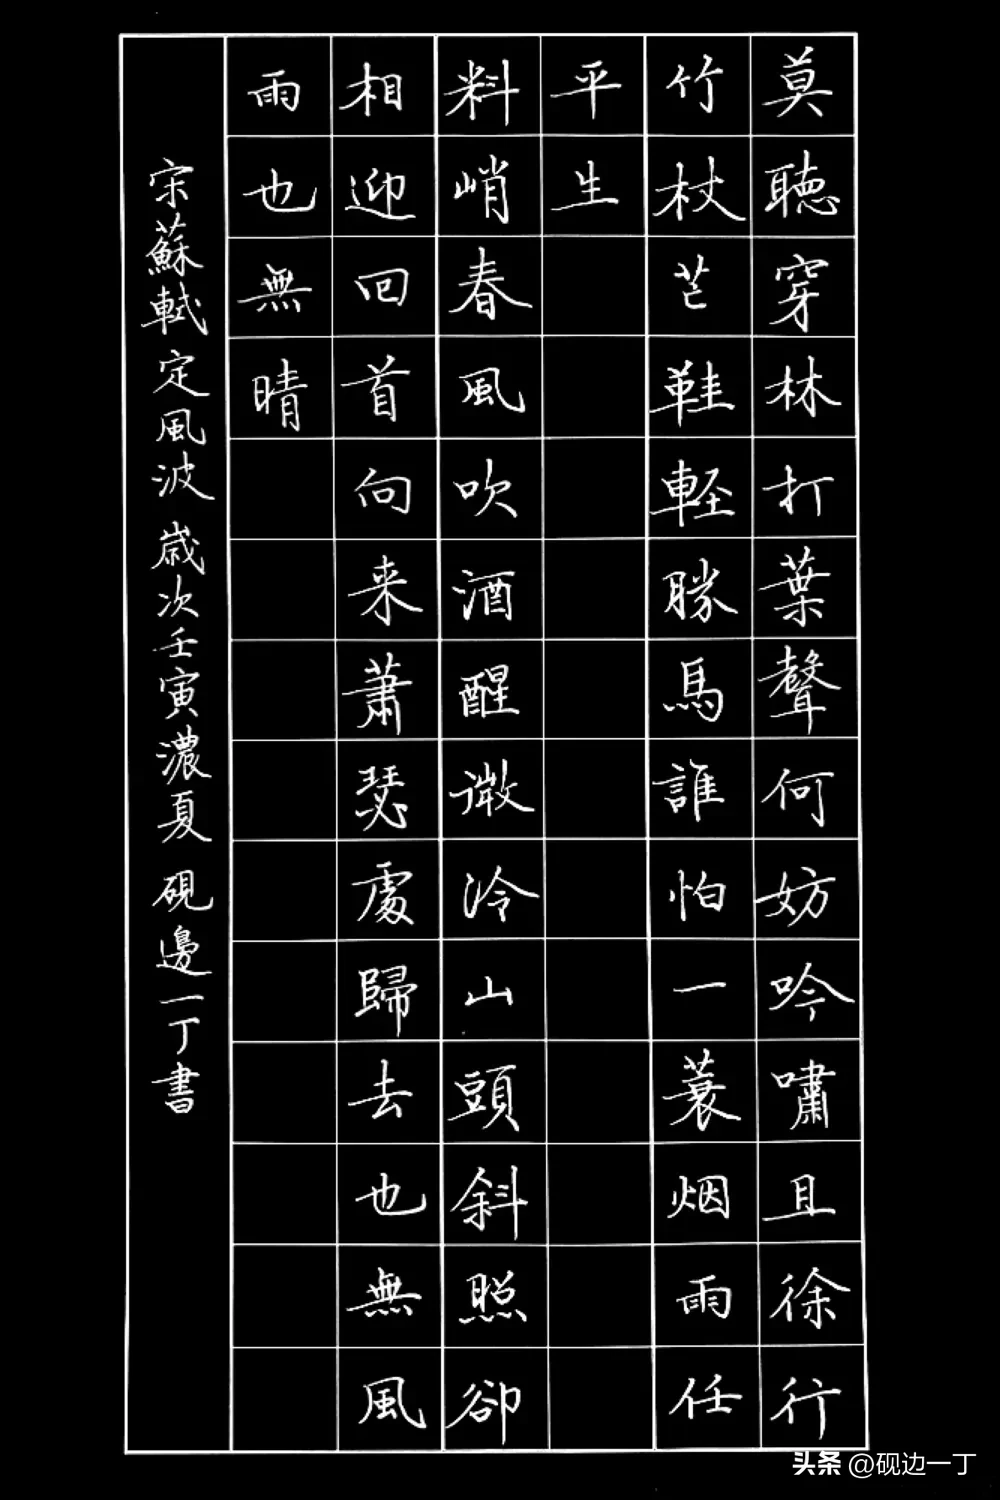 莫聽穿林打葉聲何妨吟嘯且徐行
竹杖芒鞋輕勝馬誰怕一蓑烟雨任
平生
料峭春風吹酒醒微冷山頭斜照卻
相迎回首向来蕭瑟處歸去也無風
雨也無晴
宋蘇軾定風波歲次壬寅濃夏硯邊一丁書
头条 @砚边一丁